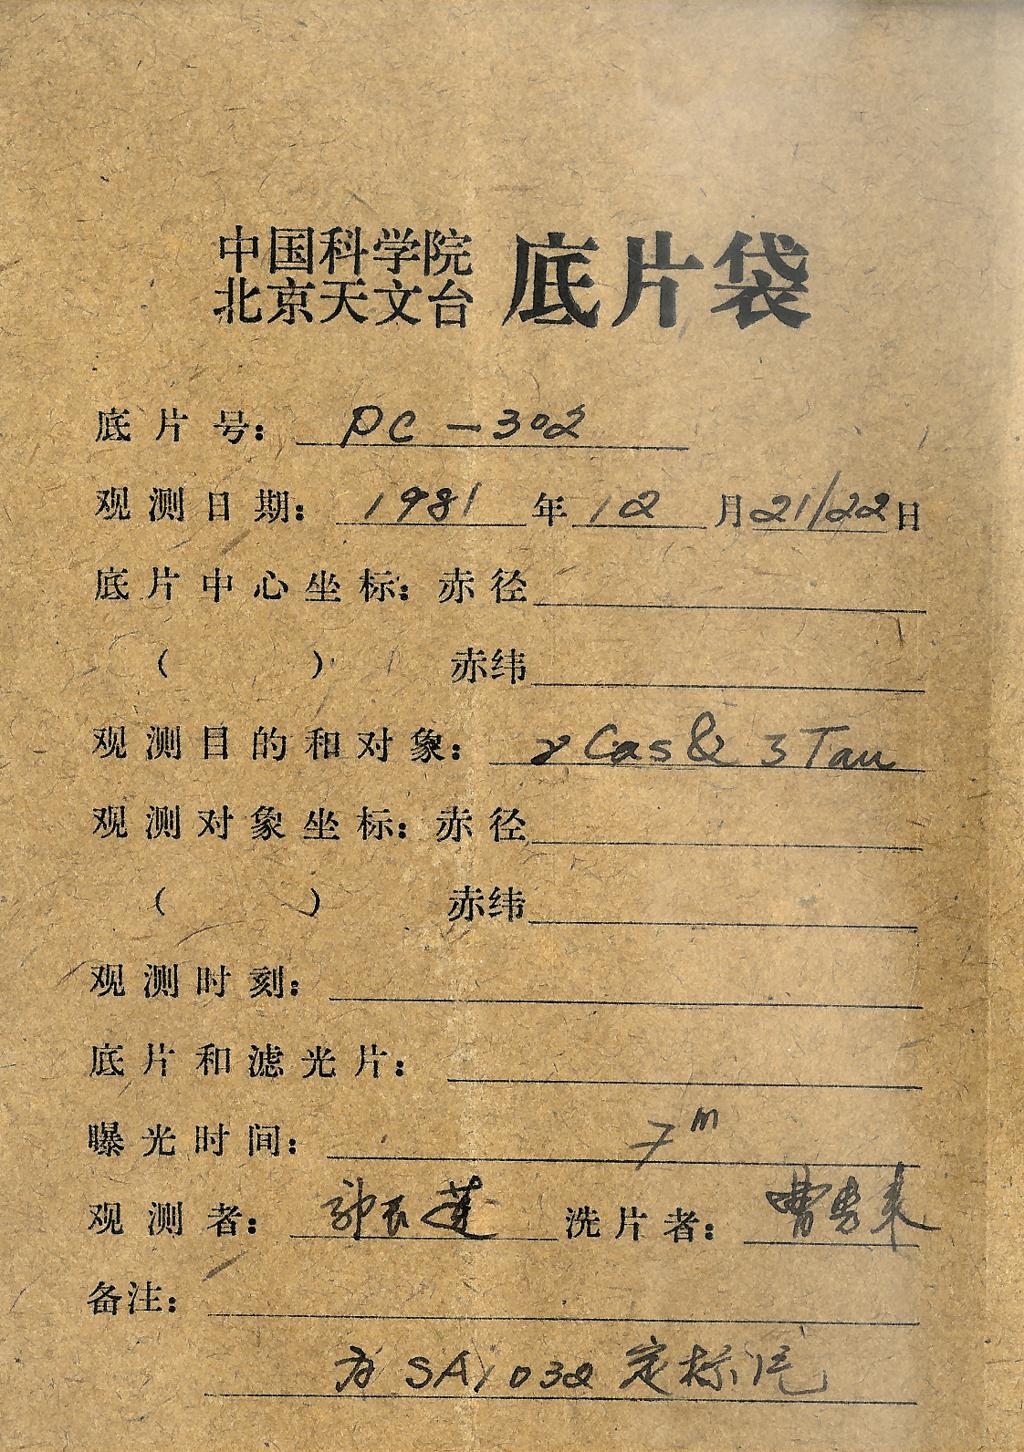 中国科学院
北京天文台 底片袋
底片号: PC-302
观测日期: 1981年12月21/22日
底片中心坐标: 赤径
( ) 赤纬
观测目的和对象: γ Cas & 3 Tau
观测对象坐标: 赤径
( ) 赤纬
观测时刻:
底片和滤光片:
曝光时间: 7m
观测者: 洗片者:
备注:
为 SA 032 定标